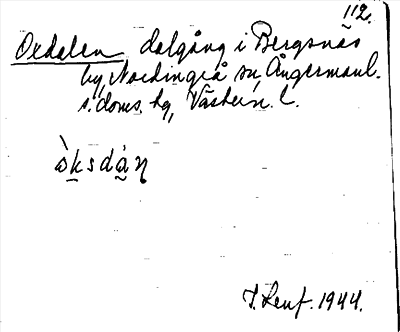 112.
Oxdalen dalgång i Bergsnäs
by, Nordingrå sn, Ångermanl.
s. doms. hg, Västern. l.
òksdàn
1944.